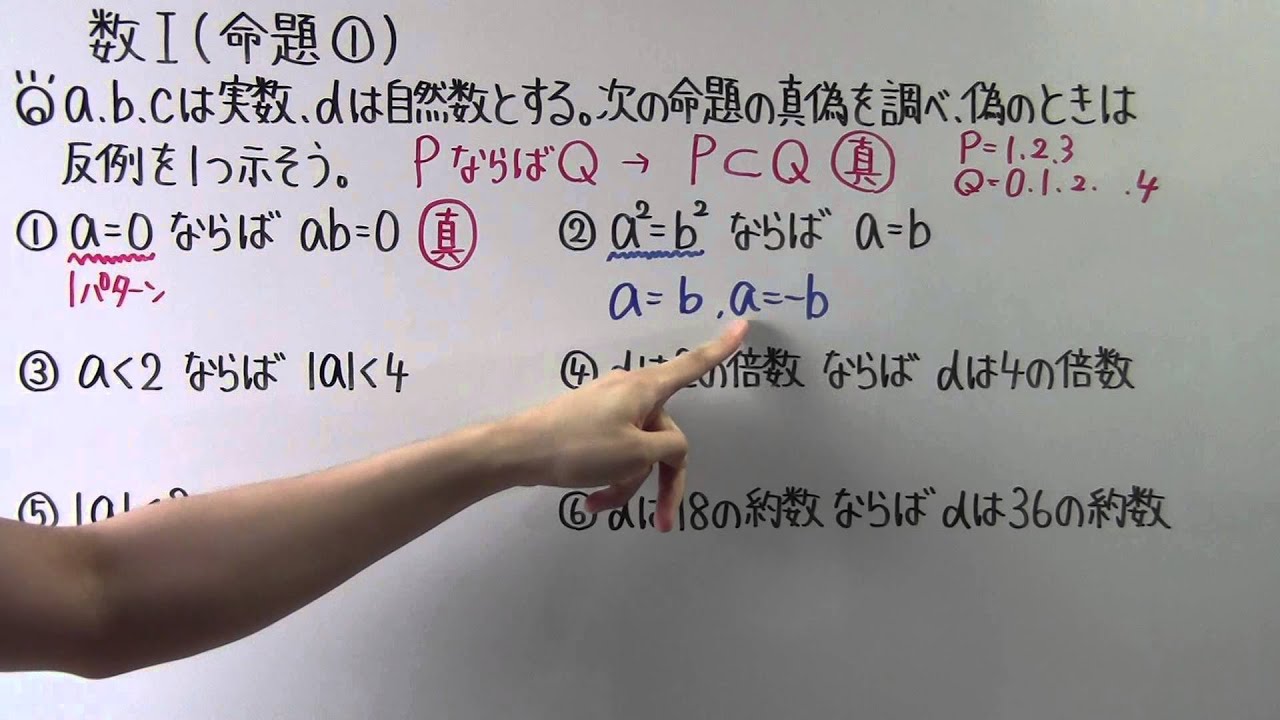 数Ⅰ(命題①)
◎a.b.cは実数、dは自然数とする。次の命題の真偽を調べ、偽のときは
反例を1つ示そう。 PならばQ → P⊂Q 真
P=1.2.3
Q=0.1.2. .4
① a=0 ならば ab=0 真
1パターン
② a²=b² ならば a=b
a=b, a=-b
③ a<2 ならば |a|<4
④ の倍数 ならば dは4の倍数
⑤ |a|<
⑥ dは18の約数 ならば dは36の約数